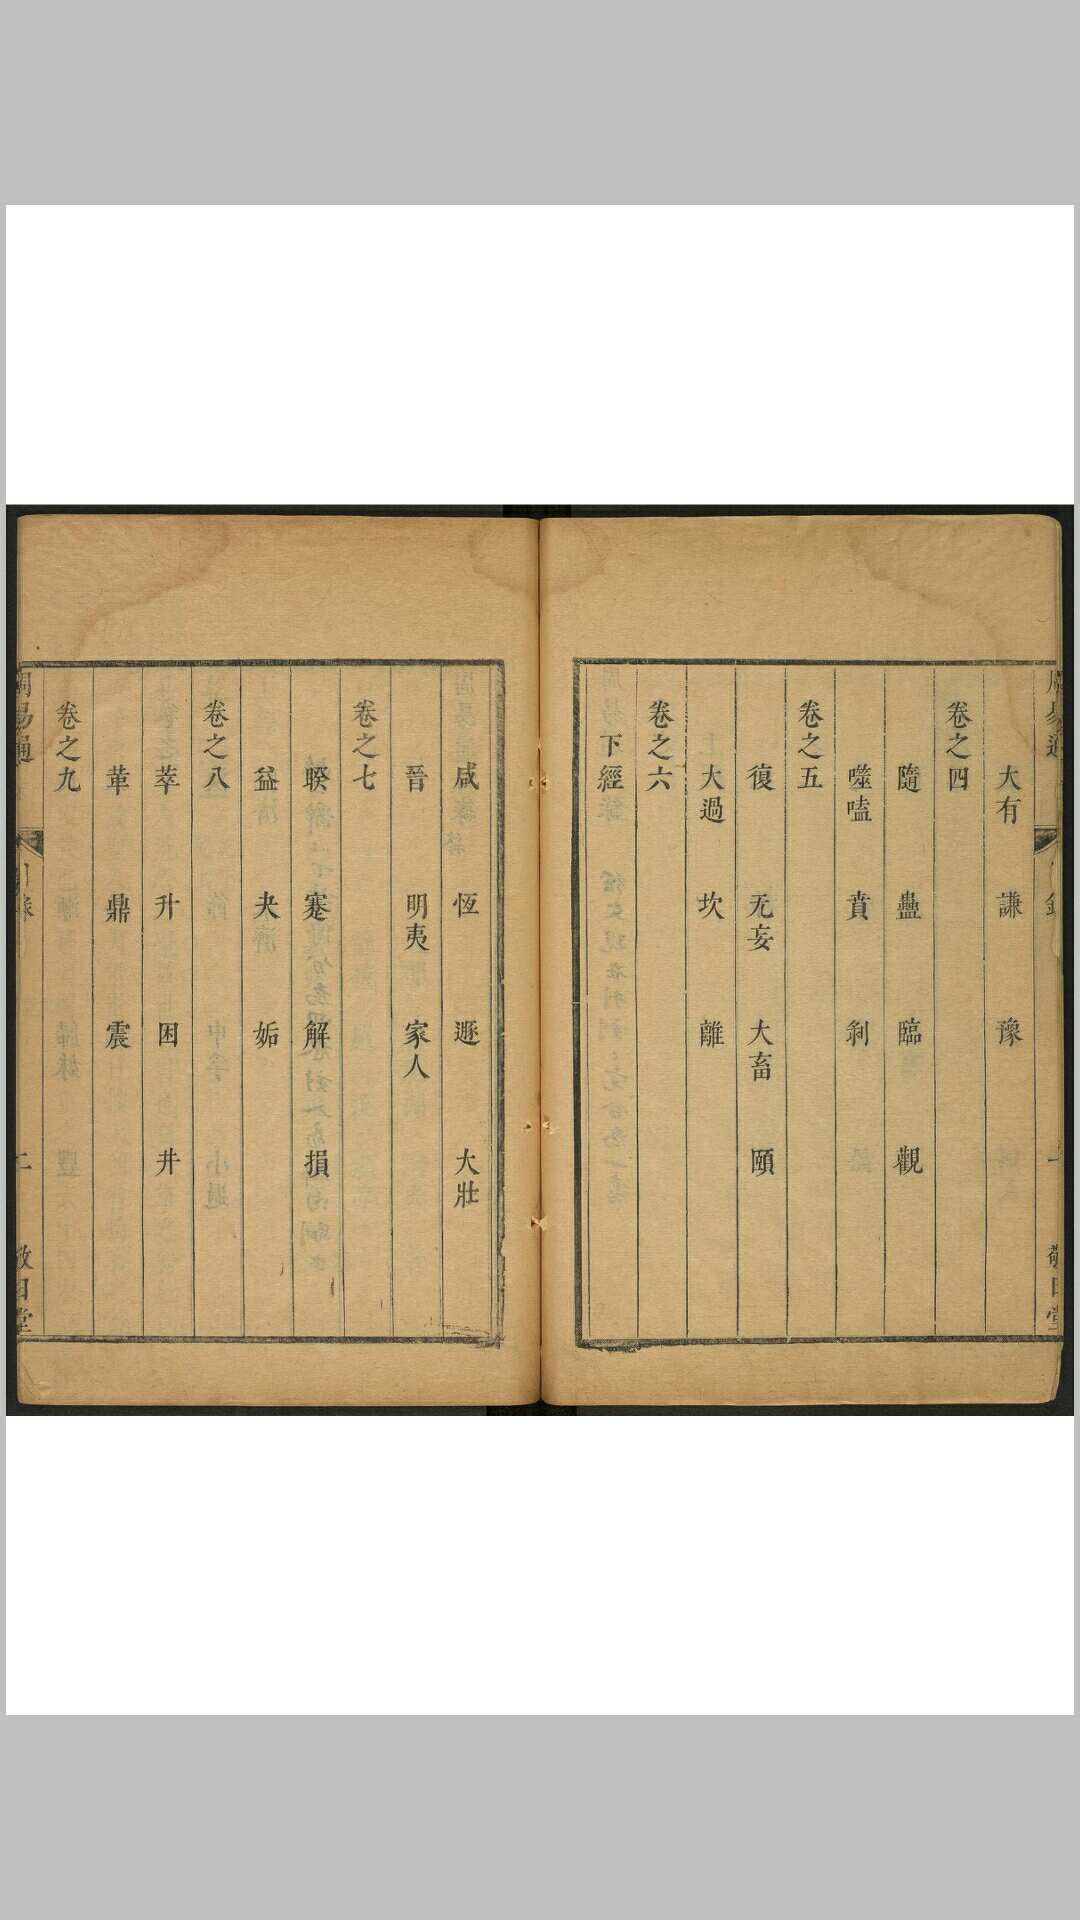 大有 謙 豫
卷之四
隨 蠱 臨 觀
噬嗑 賁 剝
卷之五
復 无妄 大畜 頤
大過 坎 離
卷之六
下經
咸 恆 遯 大壯
晉 明夷 家人
卷之七
睽 蹇 解 損
益 夬 姤
卷之八
萃 升 困 井
革 鼎 震
卷之九
周易通 目錄 二 敬日堂